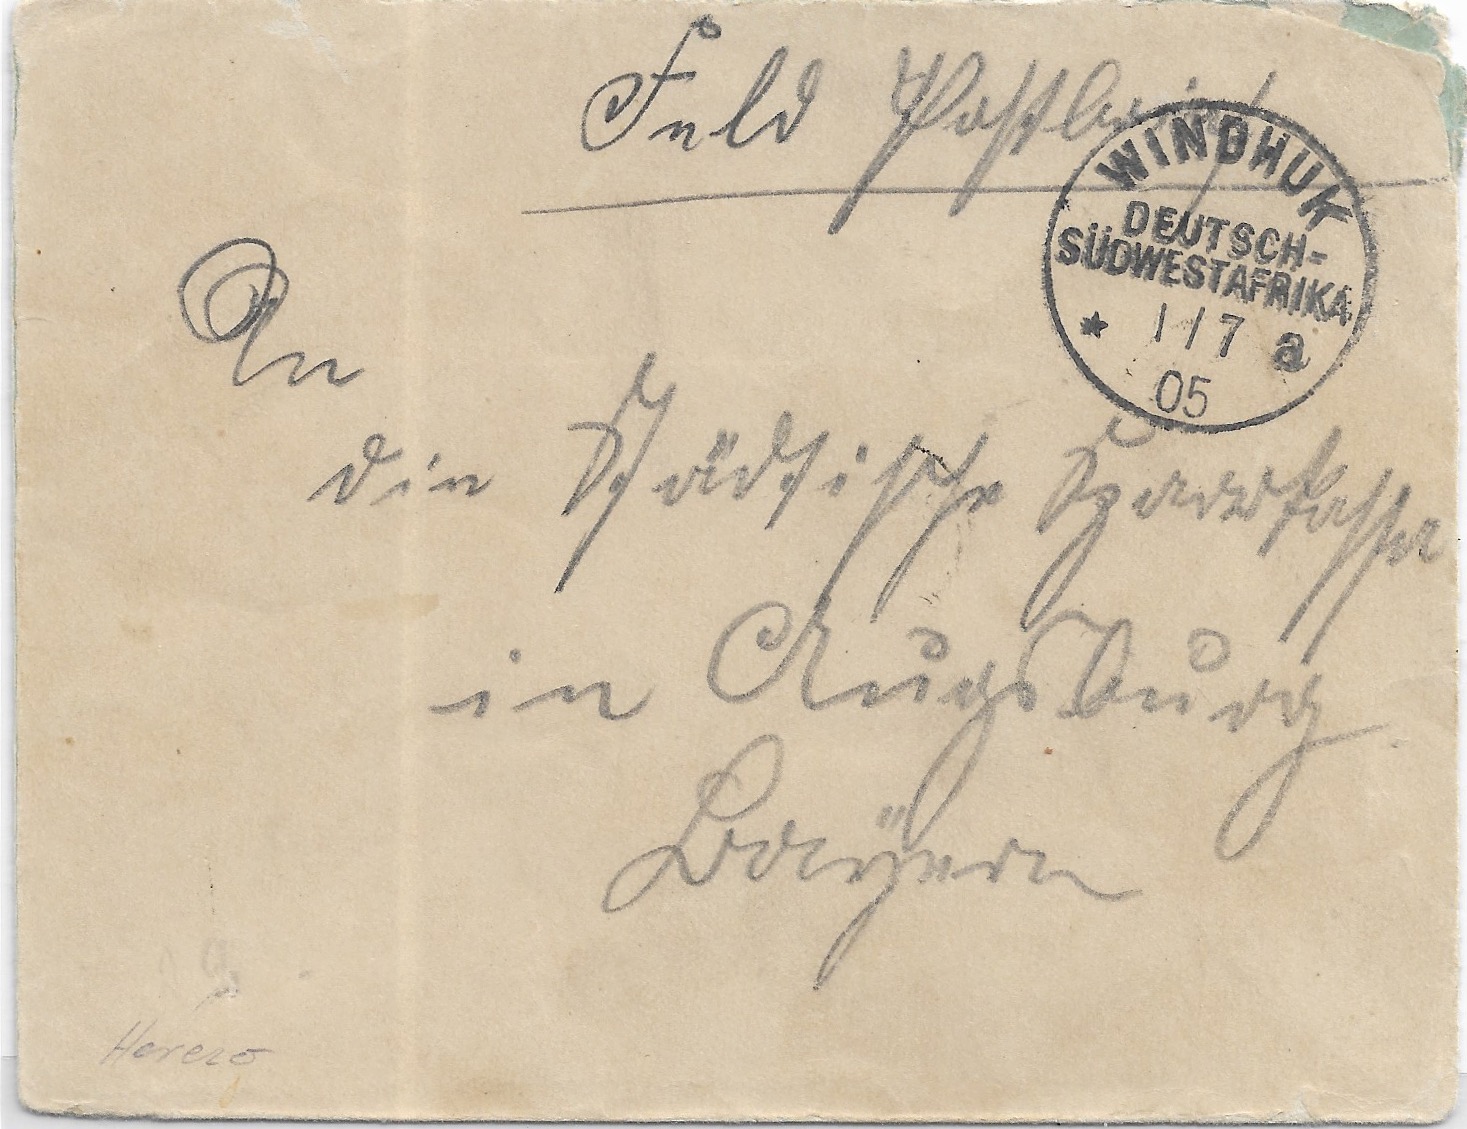 Feld Postbrief
WINDHUK
DEUTSCH-
SÜDWESTAFRIKA
* 1/7 a
05
An
die Städtische Sparkasse
in Augsburg
Bayern
Herero